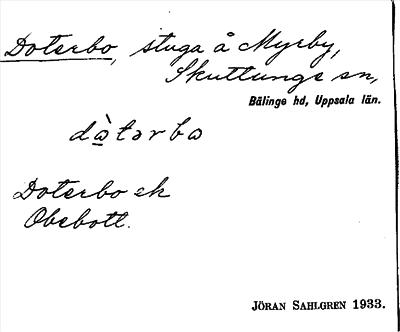 Doterbo, stuga å Myrby,
Skuttunge sn,
Bälinge hd, Uppsala län.
dàtərbo
Doterbo ek
Obebott.
JÖRAN SAHLGREN 1933.